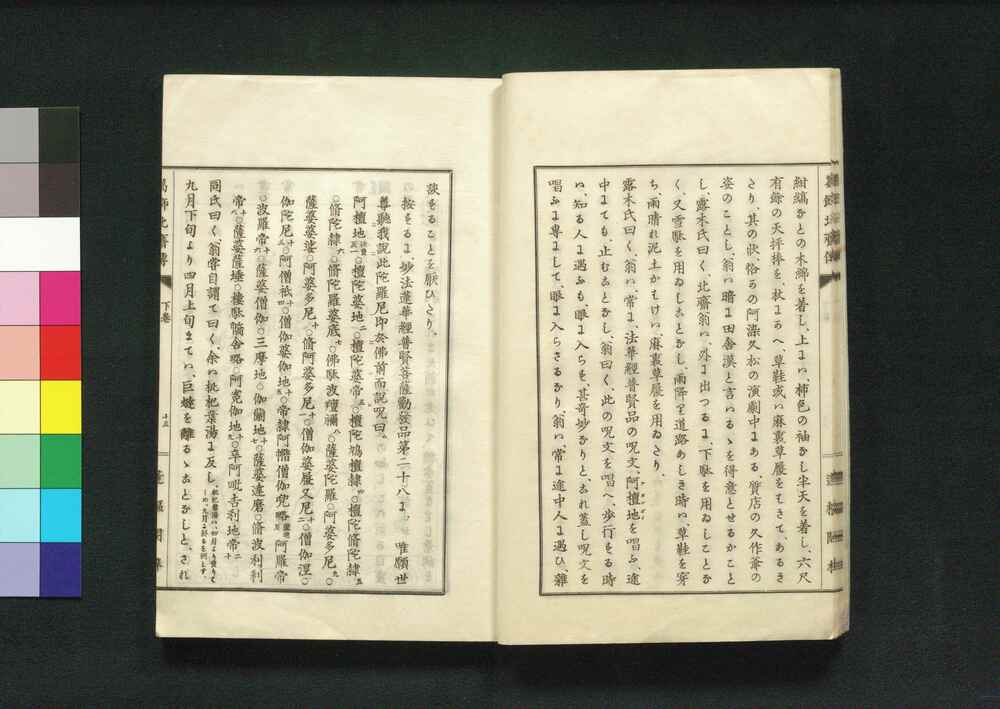 紺縞などの木綿を着し、上に、柿色の袖なし半天を着し、六尺
有餘の天秤棒を、杖にかへ、草鞋或い麻裏草履をはきて、あるき
たり、其の状、俗にの阿染久松の演劇中にある、質店の久作爺の
姿のことし、翁い暗に田舎漢と言いるゝを得意とせるかこと
し、露木氏曰く、北齋翁い、外に出つるに、下駄を用ゐしことな
く、又雪駄を用ゐしことなし、雨降り道路あしき時い、草鞋を穿
ち、雨晴れ泥土かわけい、麻裏草履を用ゐたり、
露木氏曰く、翁い、常に、法華經普賢品の呪文、阿檀地を唱ふ、途
中にても、止むことなし、翁曰く、此の呪文を唱へ、歩行をる時
い、知る人に遇ふも、眼に入らを、甚奇妙なりと、これ蓋し呪文を
唱ふに專にして、眼に入らさるなり、翁い、常に途中人に遇ひ、雜
談をることを厭ひたり、
按をるに、妙法蓮華經普賢菩薩勸發品第二十八に、唯願世
尊聽我説此陀羅尼即於佛前而説呪曰、
阿檀地○檀陀婆地○檀陀婆帝○檀陀鳩檀隷○檀陀修陀隷
○修陀隷○修陀羅婆底○佛駄波羶禰○薩婆陀羅○阿婆多尼○
薩婆婆娑○阿婆多尼○修阿婆多尼○僧伽婆履叉尼○僧伽涅
伽陀尼○阿僧祇○僧伽婆伽地○帝隷阿惰僧伽兜略○阿羅帝
○波羅帝○薩婆僧伽○三摩地○伽蘭地○薩婆達磨○修波利刹
帝○薩婆薩埵○樓駄憍舍略○阿㝹伽地○辛阿毗吉利地帝
同氏曰く、翁甞自謂て曰く、余い枇杷葉湯に反し、
九月下旬より四月上旬まてい、巨燵を離るゝことなしと、され
下卷
十三